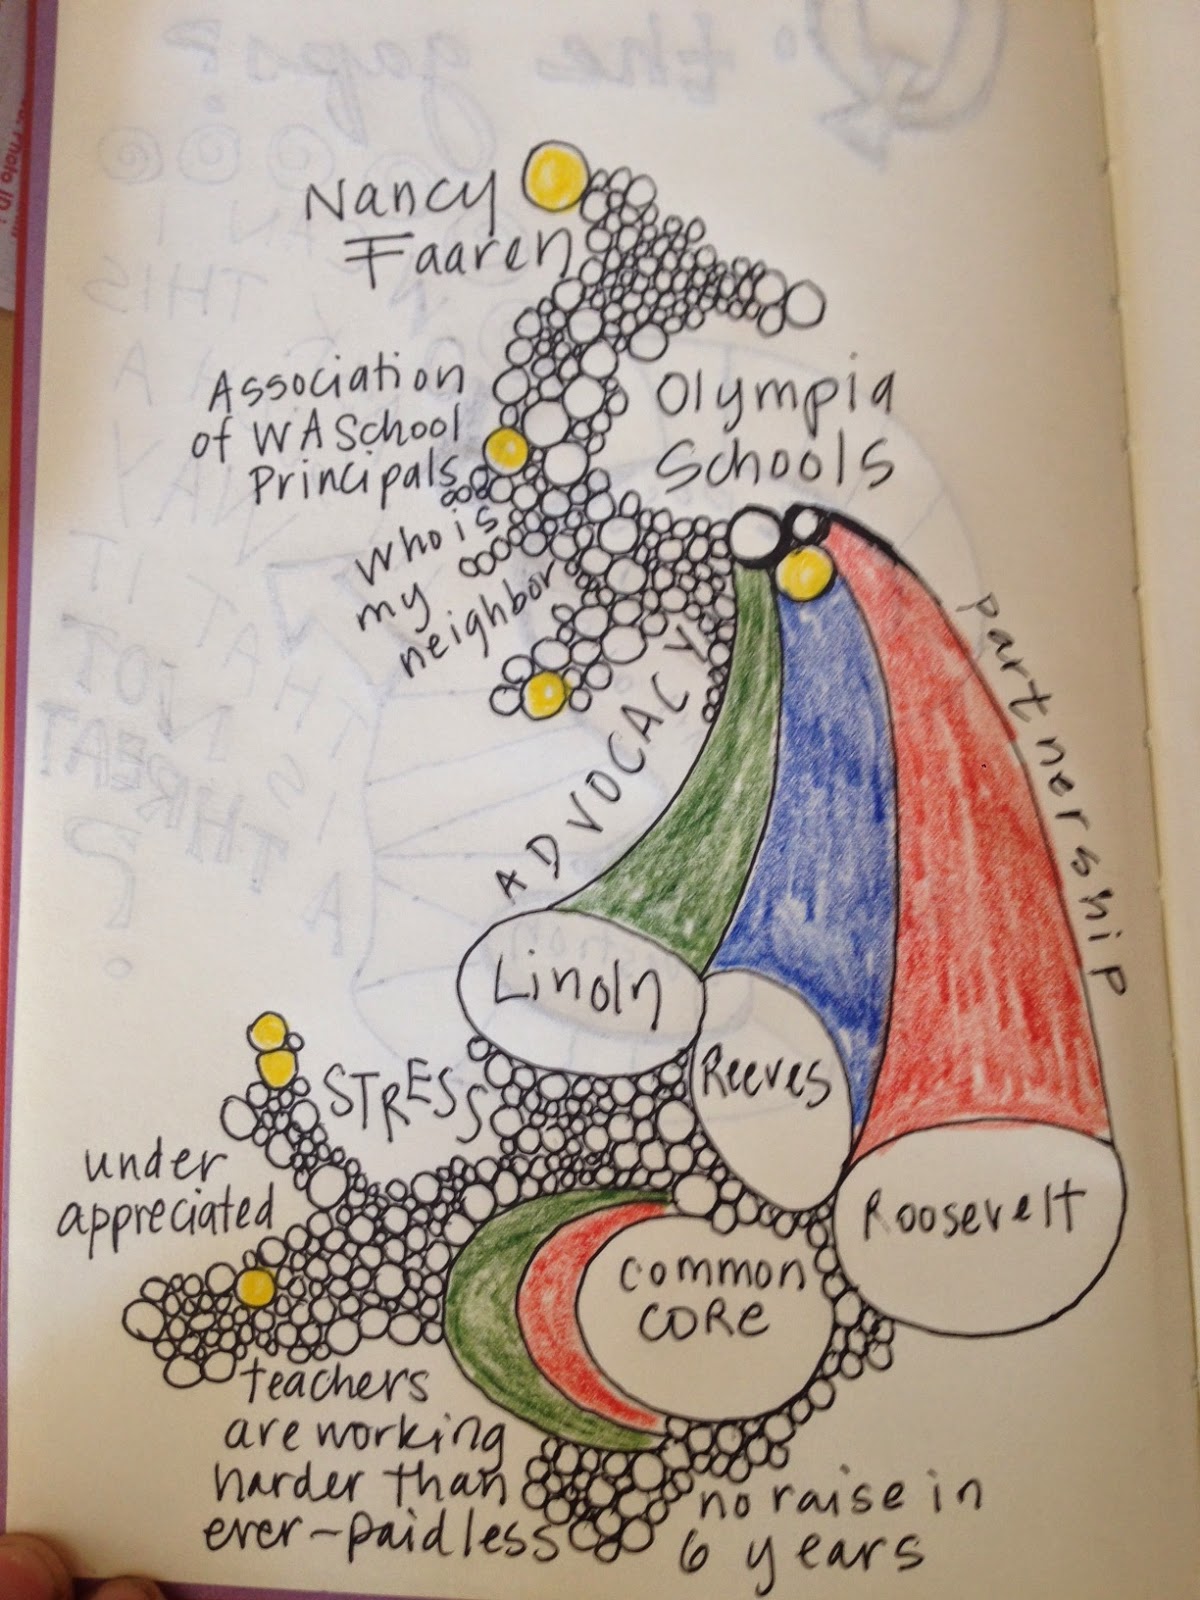 Nancy
Faaren
Association
of WA School
Principals
Olympia
Schools
who is
my
neighbor
ADVOCACY
partnership
Linoln
Reeves
Roosevelt
STRESS
under
appreciated
common
CORE
teachers
are working
harder than
ever-paid less
no raise in
6 years
the gaps?
CAN I
THIS
A
NOT
THREAT
?